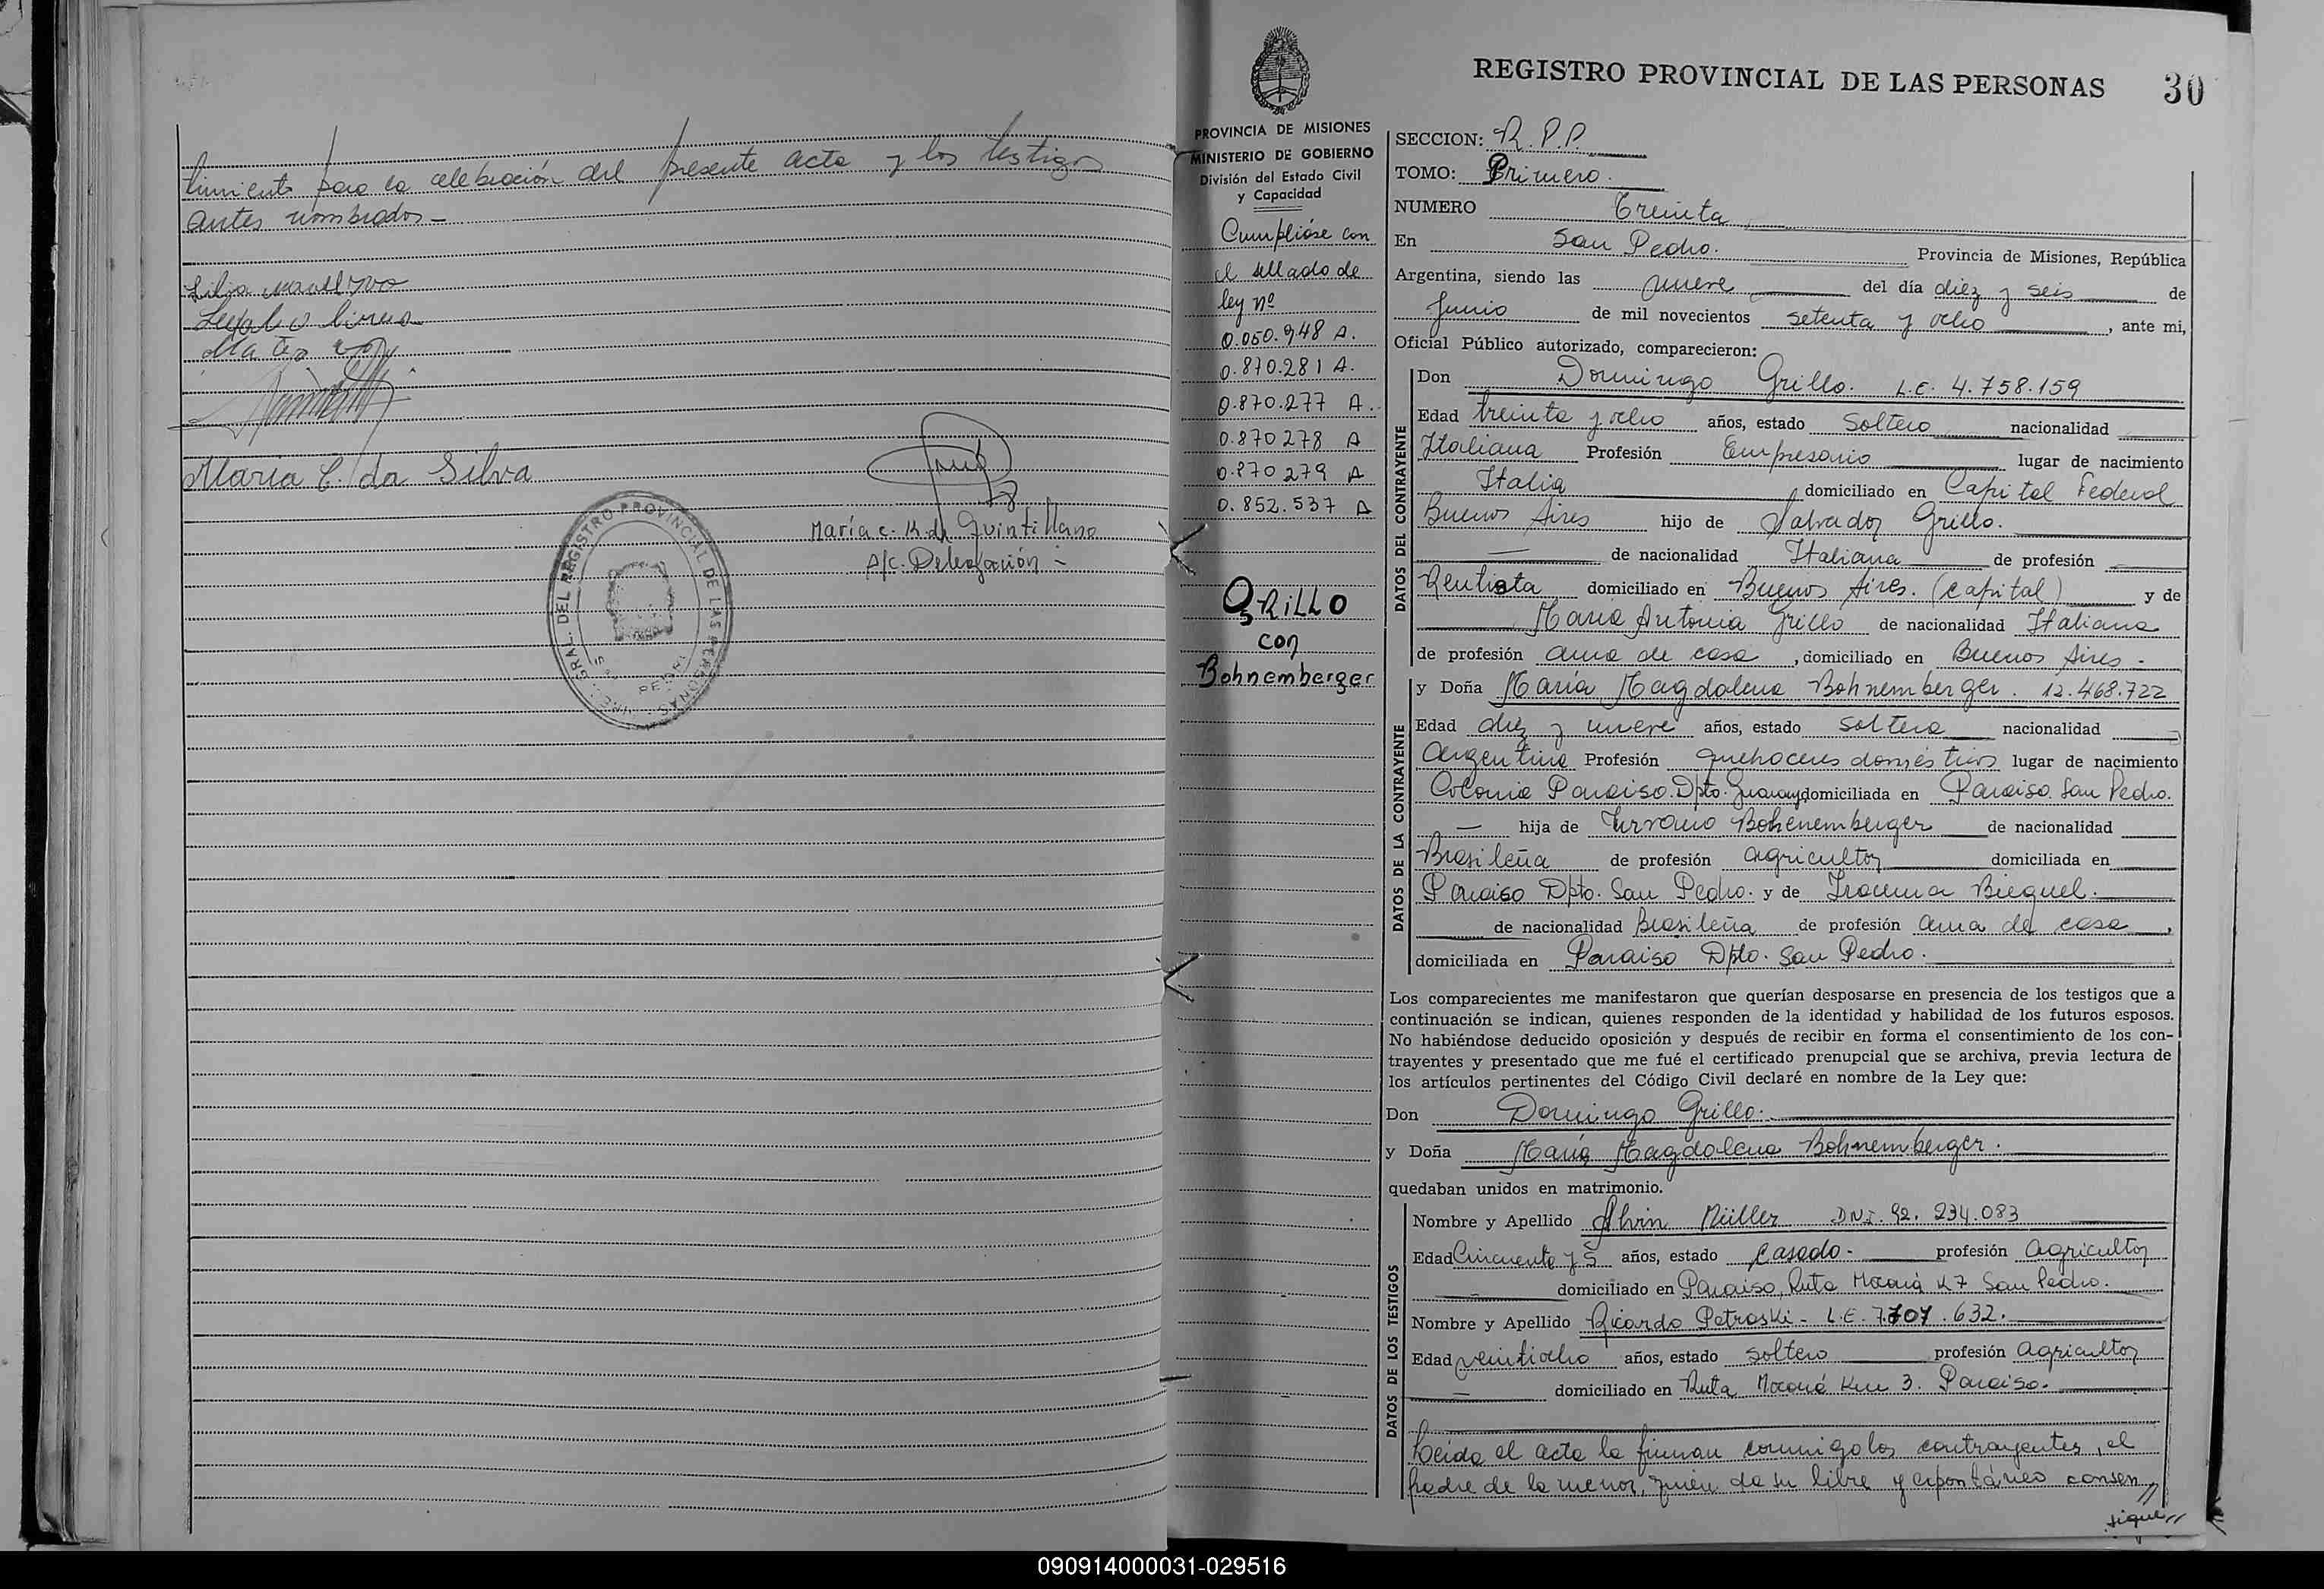 timiento para la celebración del presente acta y los testigos
antes nombrados -
Maria C. da Silva
María C. K. de Quintillano
A/C. Delegación -
REGISTRO PROVINCIAL DE LAS PERSONAS 30
PROVINCIA DE MISIONES
MINISTERIO DE GOBIERNO
División del Estado Civil
y Capacidad
Cumplióse con
el sellado de
ley nº
0.050.948 A.
0.870.281 A.
0.870.277 A.
0.870278 A
0.870279 A
0.852.537 A
GRILLO
con
Bohnemberger
SECCION: R.P.P.
TOMO: Primero.
NUMERO Treinta
En San Pedro. Provincia de Misiones, República
Argentina, siendo las nueve del día diez y seis de
Junio de mil novecientos setenta y ocho, ante mi,
Oficial Público autorizado, comparecieron:
DATOS DEL CONTRAYENTE
Don Domingo Grillo. L.E. 4.758.159
Edad treinta y ocho años, estado soltero nacionalidad
Italiana Profesión Empresario lugar de nacimiento
Italia domiciliado en Capital Federal
Buenos Aires hijo de Salvador Grillo.
— de nacionalidad Italiana de profesión
Rentista domiciliado en Buenos Aires. (capital) y de
Maria Antonia Grillo de nacionalidad Italiana
de profesión ama de casa, domiciliado en Buenos Aires -
DATOS DE LA CONTRAYENTE
y Doña María Magdalena Bohnemberger. 12.468.722
Edad diez y nueve años, estado soltera nacionalidad
Argentina Profesión quehaceres domésticos lugar de nacimiento
Colonia Paraiso. Dpto. Guarany domiciliada en Paraiso. San Pedro.
— hija de Urvano Bohenemberger de nacionalidad
Brasileña de profesión agricultor domiciliada en
Paraiso Dpto. San Pedro. y de Iracema Biequel.
de nacionalidad Brasileña de profesión ama de casa,
domiciliada en Paraiso Dpto. San Pedro.
Los comparecientes me manifestaron que querían desposarse en presencia de los testigos que a
continuación se indican, quienes responden de la identidad y habilidad de los futuros esposos.
No habiéndose deducido oposición y después de recibir en forma el consentimiento de los con-
trayentes y presentado que me fué el certificado prenupcial que se archiva, previa lectura de
los artículos pertinentes del Código Civil declaré en nombre de la Ley que:
Don Domingo Grillo.
y Doña María Magdalena Bohnemberger.
quedaban unidos en matrimonio.
DATOS DE LOS TESTIGOS
Nombre y Apellido Alvin Müller DNI. 92. 234.083
Edad Cincuenta y 5 años, estado casado - profesión agricultor
domiciliado en Paraiso, Ruta Moconá K7 San Pedro.
Nombre y Apellido Ricardo Petroski - L.E. 7.707.632.
Edad veintiocho años, estado soltero profesión agricultor
— domiciliado en Ruta Moconá Km 3. Paraiso.
Leida el acta la firman conmigo los contrayentes, el
padre de la menor, quién da su libre y espontáneo consen
sigue //
090914000031-029516